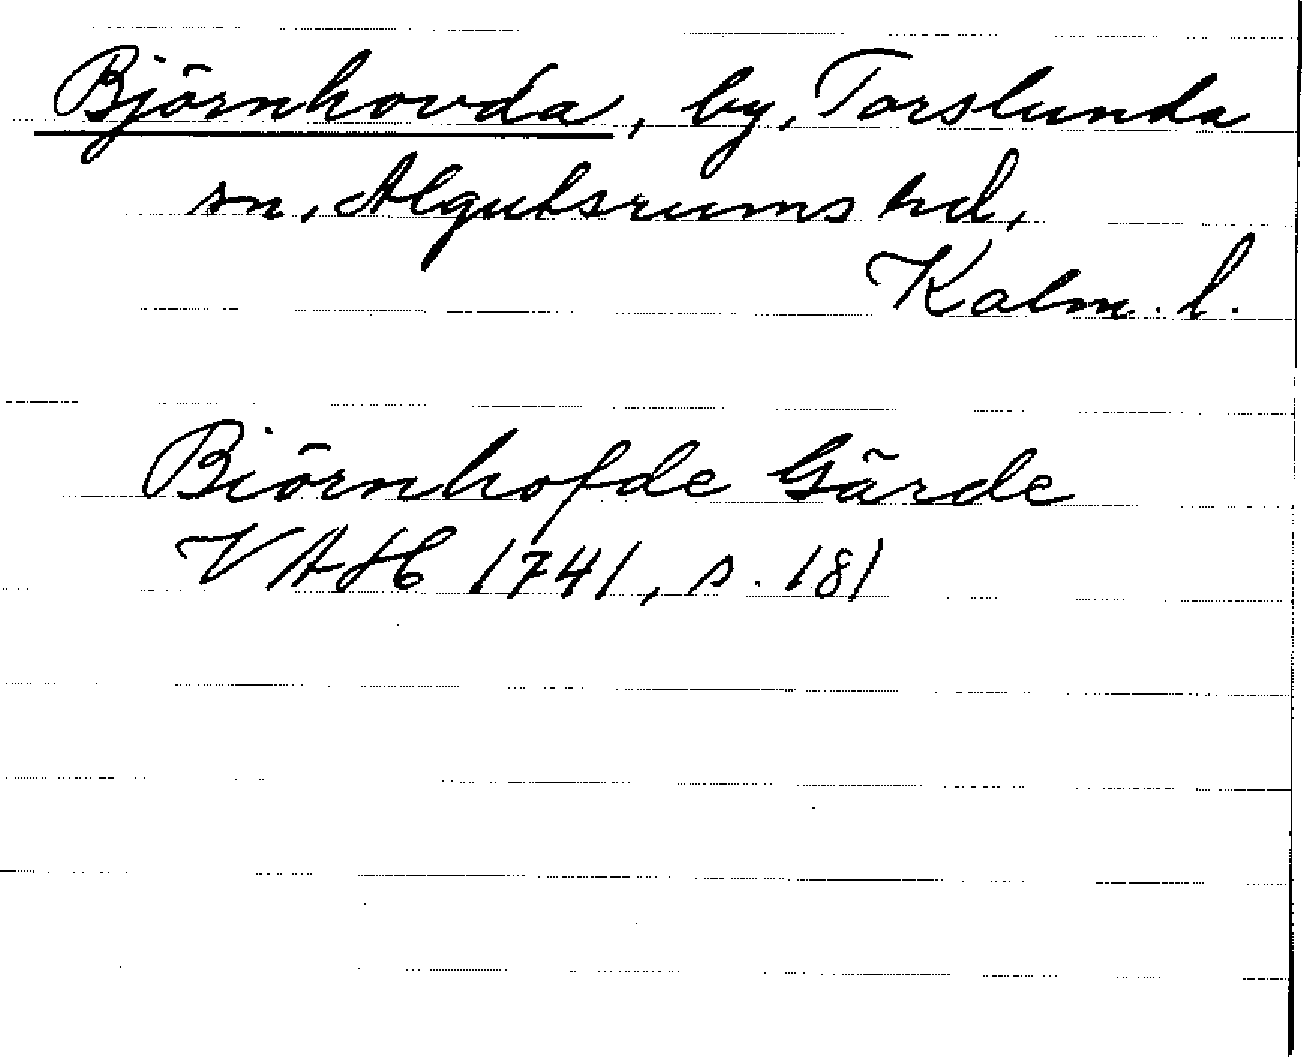 Björnhovda, by, Torslunda
sn, Algutsrums hd,
Kalm. l.
Biörnhofde Gärde
VAH 1741, s. 181